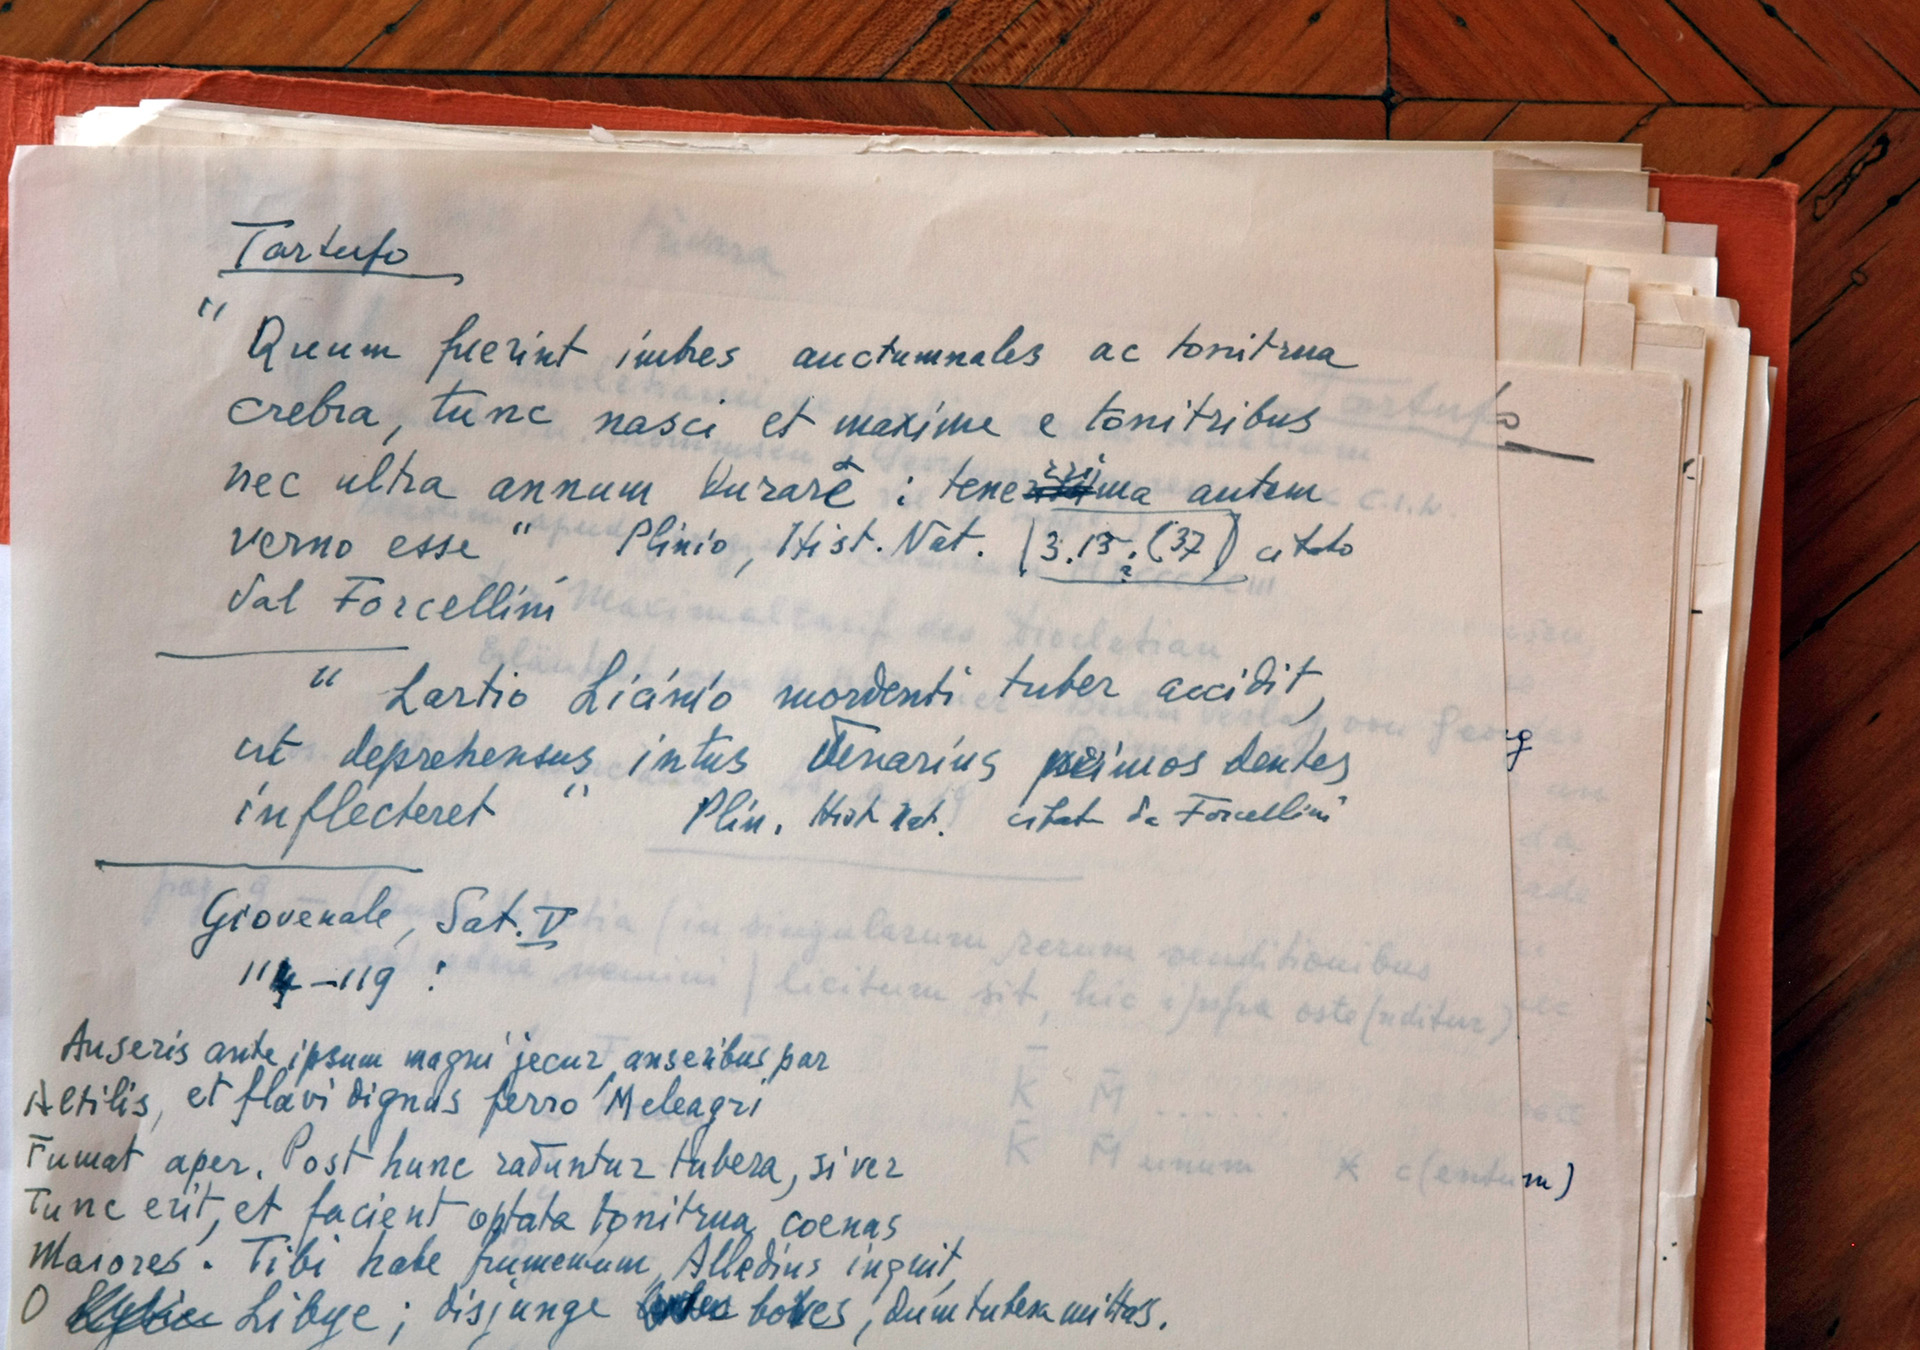 Tartufo
" Quum fuerint imbres auctumnales ac tonitrua
crebra, tunc nasci et maxime e tonitribus
nec ultra annum durare : tenerrima autem
verno esse " Plinio, Hist. Nat. (3.13.(37) citato
dal Forcellini
" Lartio Licinio mordenti tuber accidit,
ut deprehensus intus denarius primos dentes
inflecteret " Plin. Hist nat. citat da Forcellini
Giovenale, Sat. V
114-119 :
Anseris ante ipsum magni jecur, anseribus par
Altilis, et flavi dignus ferro Meleagri
Fumat aper. Post hunc raduntur tubera, si ver
Tunc erit, et facient optata tonitrua coenas
Maiores. Tibi habe frumentum, Alledius inquit,
O Libye ; disjunge boves, dum tubera mittas.
Tartufo
Maximaltarif des Diocletian
in singularum rerum venditionibus
licitum sit, hic infra oste(nditur)
K M
K M unum X c(entum)